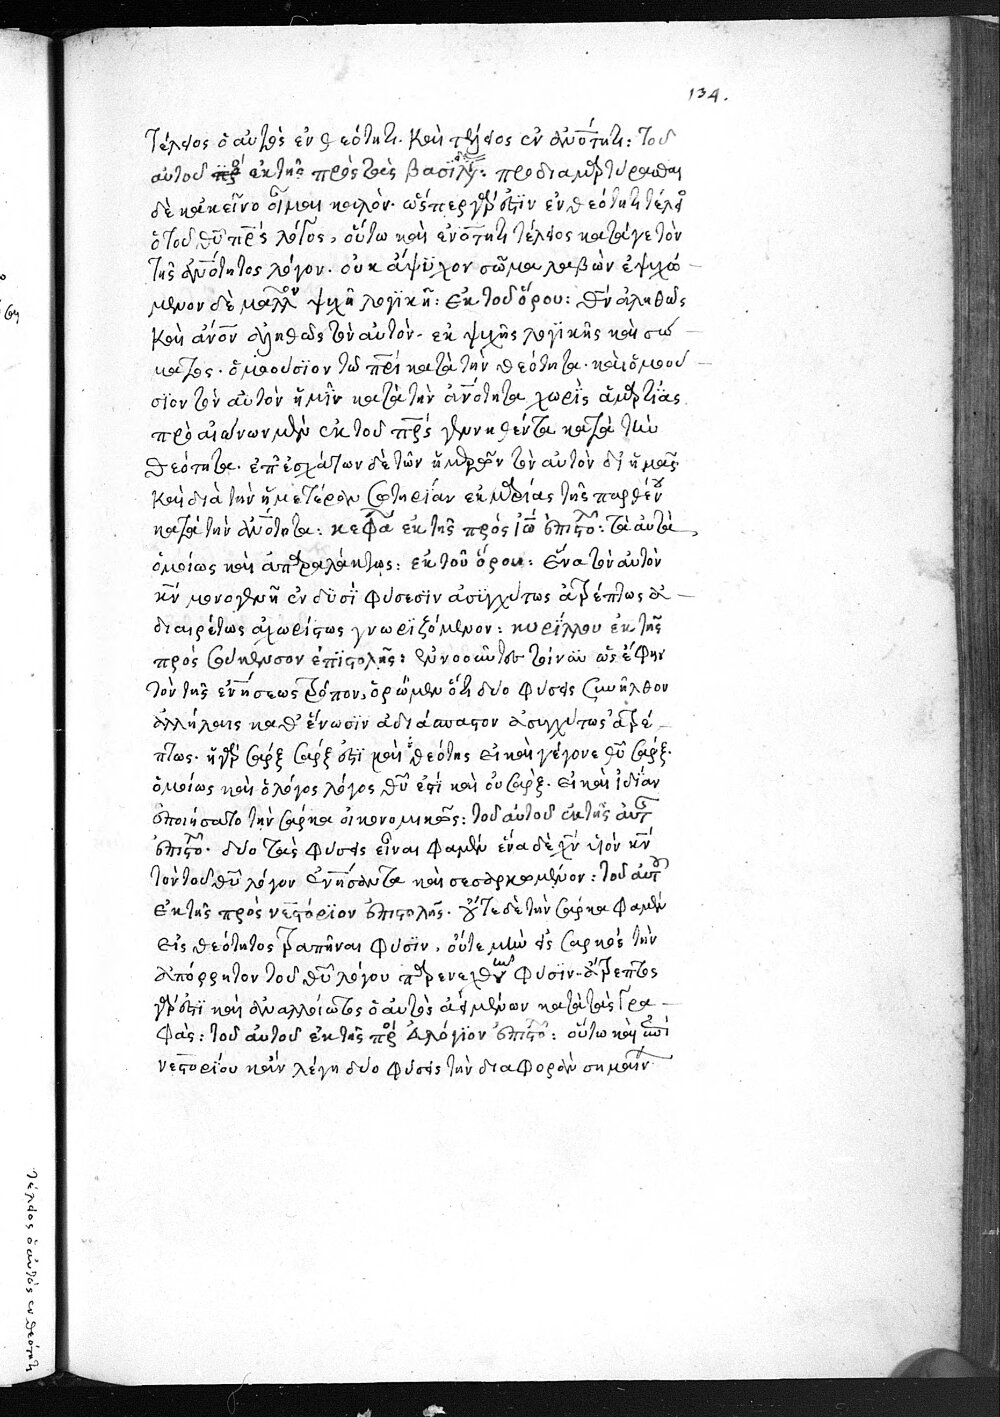 134.
τέλειος ὁ αὐτὸς ἐν θεότητι. καὶ τέλειος ἐν ἀνότητι: τοῦ
αὐτοῦ ἐκ τῆς πρὸς τὰς βασιλί: προδιαμαρτύρασθαι
δὲ κἀκεῖνο οἶμαι καλόν. ὥσπερ γάρ ἐστϊν ἐν θεότητι τέλει
ὁ τοῦ θῦ πρς λόγος, οὕτω καὶ ἐν ἀνότητι τέλειος κατάγε τὸν
τῆς ἀνότητος λόγον. οὐκ ἄψϋχον σῶμα λαβὼν ἐψυχω
μένον δὲ μᾶλλον ψυχῆ λογϊκῆ: ἐκ τοῦ ὅρου: θν ἀληθῶς
καὶ ἄνον ἀληθῶς τὸν αὐτὸν. ἐκ ψυχῆς λογϊκῆς καὶ σώ
ματος. ὁμοούσϊον τῶ πρι κατὰ τὴν θεότητα. καὶ ὁμοού
σϊον τὸν αὐτὸν ἡμῖν κατὰ τὴν ἀνότητα χωρὶς ἁμαρτίας
πρὸ αἰώνων μὲν ἐκ τοῦ πρς γεννηθέντα κατὰ τὴν
θεότητα. ἐπ' ἐσχάτων δὲ τῶν ἡμερῶν τὸν αὐτὸν δι' ἡμᾶς
καὶ διὰ τὴν ἡμετέραν σωτηρίαν ἐκ μαρίας τῆς παρθένου
κατὰ τὴν ἀνότητα: ἐκ τῆς πρὸς ἰω ἐπιστο: τὰ αὐτὰ
ὁμοίως καὶ ἀπαραλάκτως: ἐκ τοῦ ὅρου: ἕνα τὸν αὐτὸν
μονογενῆ ἐν δϋσὶ φύσεσϊν ἀσϋγχύτως ἀτρέπτως ἀ
διαιρέτως ἀχωρίστως γνωρϊζόμενον: κυρίλλου ἐκ τῆς
πρὸς σούκενσον ἐπϊστολῆς: ἐννοοῦντες τοίνϋν ὡς ἔφην
τὸν τῆς ἑνώσεως τρόπον, ὁρῶμεν ὅτι δύο φύσεις συνῆλθον
ἀλλήλαις καθ' ἕνωσϊν ἀδιάσπαστον ἀσϋγχύτως ἀτρέ
πτως. ἡ γὰρ σάρξ σάρξ ἐστϊ καὶ οὐ θεότης εἰ καὶ γέγονε θῦ σάρξ.
ὁμοίως καὶ ὁ λόγος λόγος θῦ ἐστὶ καὶ οὐ σάρξ. εἰ καὶ ἰδίαν
ἐποιήσατο τὴν σάρκα οἰκονομικῶς: τοῦ αὐτοῦ ἐκ τῆς αὐτ
ἐπιστο. δύο τὰς φύσεις εἶναι φαμὲν ἕνα δὲ χν υἱὸν κν
τὸν τοῦ θῦ λόγον ἐνανθρωπήσαντα καὶ σεσαρκωμένον: τοῦ αὐτ
ἐκ τῆς πρὸς νεστόρϊον ἐπιστολῆς. οὔτε δὲ τὴν σάρκα φαμὲν
εἰς θεότητος τραπῆναι φύσϊν, οὔτε μὴν εἰς σαρκὸς τὴν
ἀπόρρητον τοῦ θῦ λόγου παρενεχθῆναι φύσϊν. ἄτρεπτος
γάρ ἐστϊ καὶ ἀναλλοίωτος ὁ αὐτὸς ἀεὶ μένων κατὰ τὰς γρα
φὰς: τοῦ αὐτοῦ ἐκ τῆς πρὸς εὐλόγϊον ἐπιστο: οὕτω καὶ ἐπὶ
νεστορίου κἂν λέγη δύο φύσεις τὴν διαφορὰν σημαίν
τέλειος ὁ αὐτὸς ἐν θεότητι